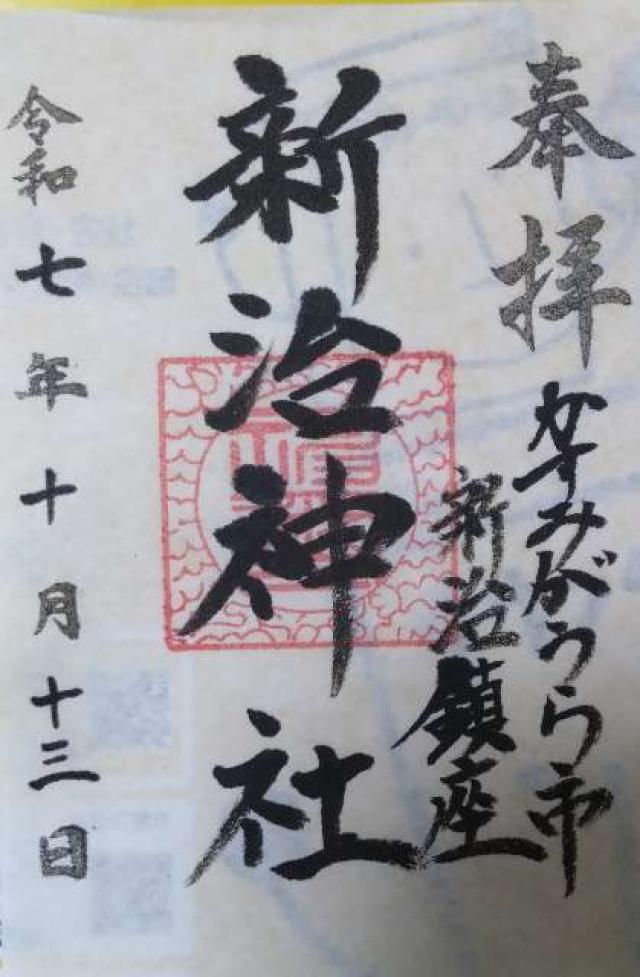 奉拝
かすみがうら市
新治鎮座
新治神社
令和七年十月十三日